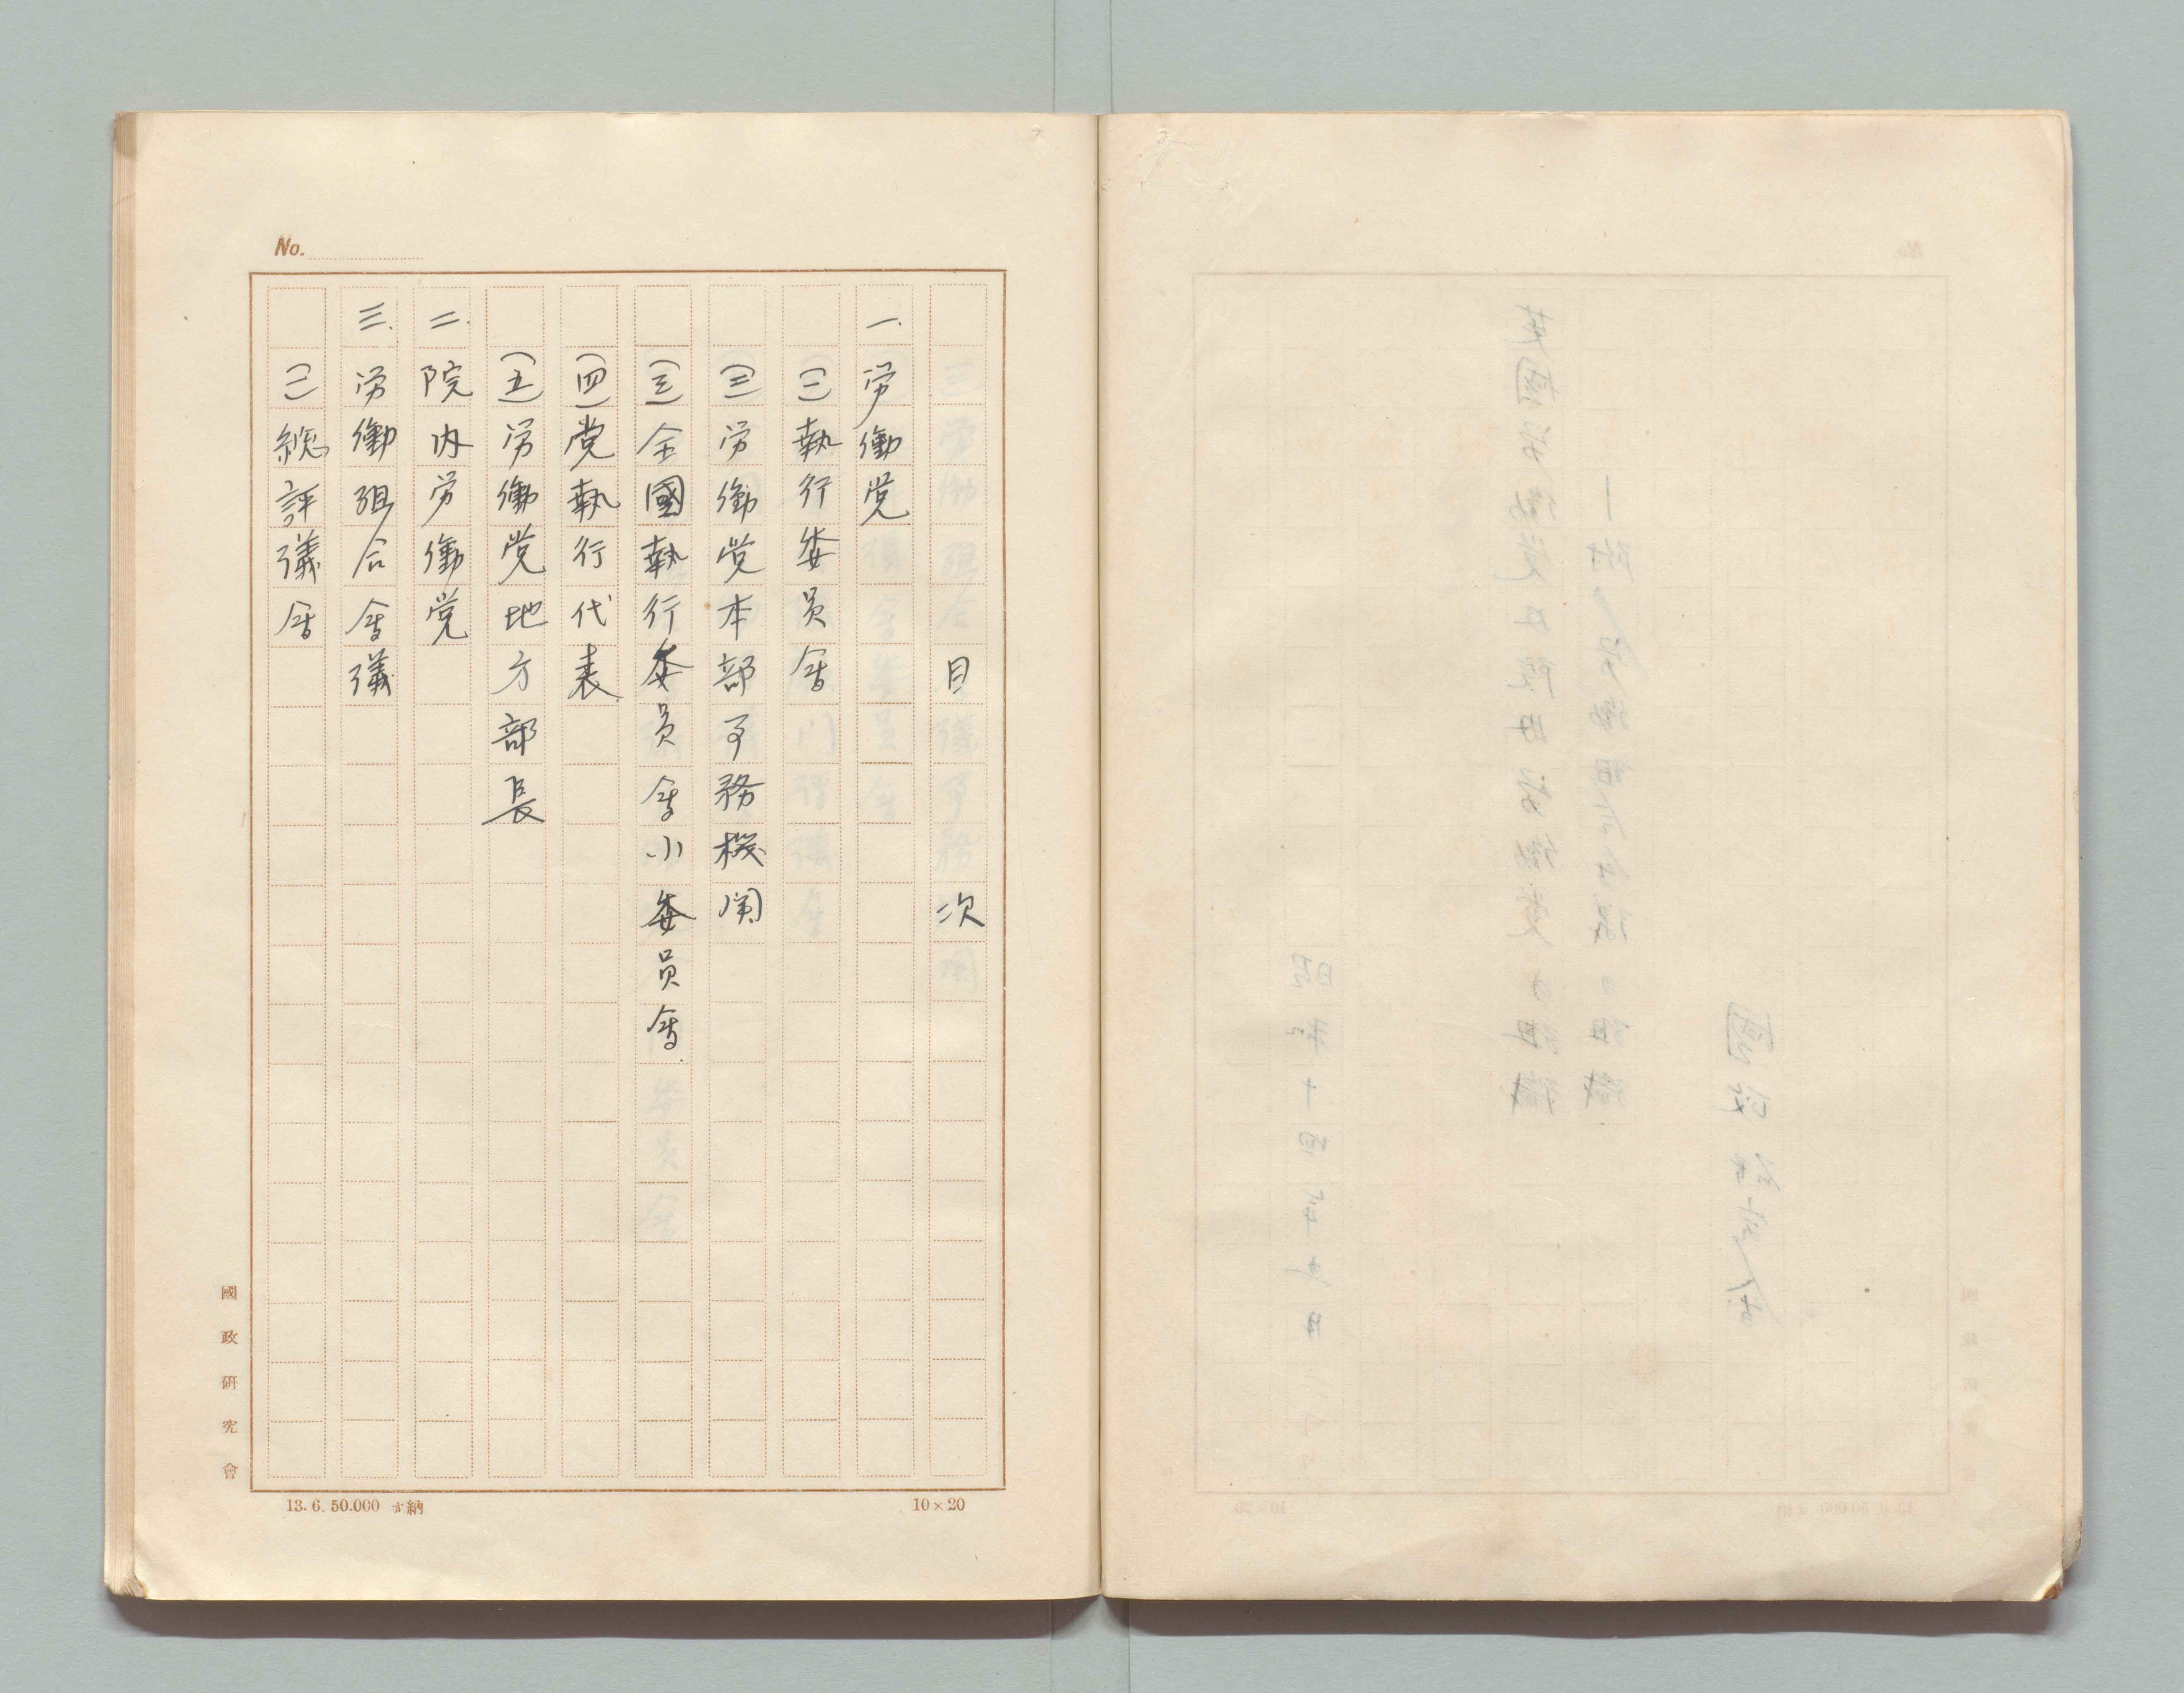 目次
一.労働党
(一)執行委員会
(二)労働党本部事務機関
(三)全國執行委員会小委員会
(四)党執行代表
(五)労働党地方部長
二.院内労働党
三.労働組合会議
(一)総評議会
No.
國政研究會
13.6.50.000
納
10×20